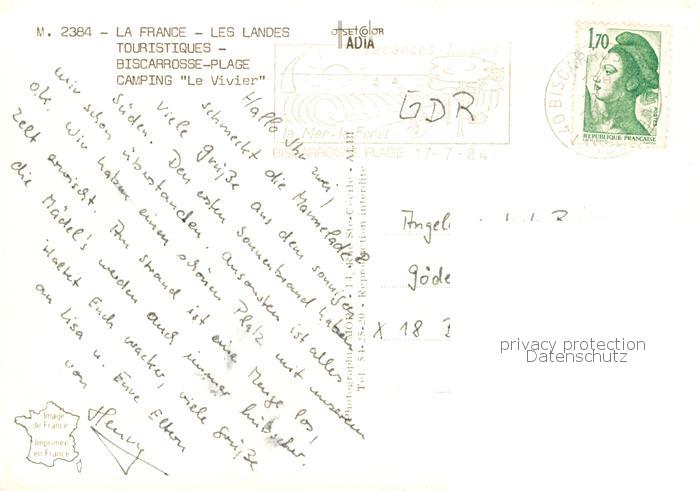 M. 2384 - LA FRANCE - LES LANDES
TOURISTIQUES -
BISCARROSSE-PLAGE
CAMPING "Le Vivier"
OFFSET COLOR
IADIA
1,70
POSTES
REPUBLIQUE FRANCAISE
40 BISCARR
la Mer-la Foret
BISCARROSSE PLAGE 17-7-84
GDR
Hallo Ihr zwei,
schmeckt die Marmelade?
Viele Grüße aus dem sonnigen
Süden. Den ersten Sonnenbrand haben
wir schon überstanden. Ansonsten ist alles
o.k. Wir haben einen schönen Platz mit unserem
Zelt erwischt. Am Strand ist eine Menge los!
die Mädel's werden auch immer hübscher.
Haltet Euch wacker, viele Grüße
an Lisa u. Eure Eltern
von Henry
Reproduction interdite
Angel
Göde
X 18
privacy protection
Datenschutz
Image
de France
Imprimée
en France